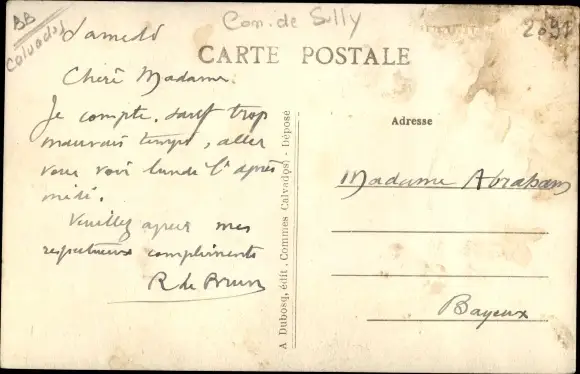 BB
Calvados
Con. de Sully
2091
CARTE POSTALE
Samedi
Chère Madame.
Je compte, sauf trop
mauvais temps, aller
vous voir lundi l'après
midi.
Veuillez agréer mes
respectueux compliments
R de Brun
A Dubosq, édit. Commes Calvados) - Dépose
Adresse
Madame Abraham
Bayeux